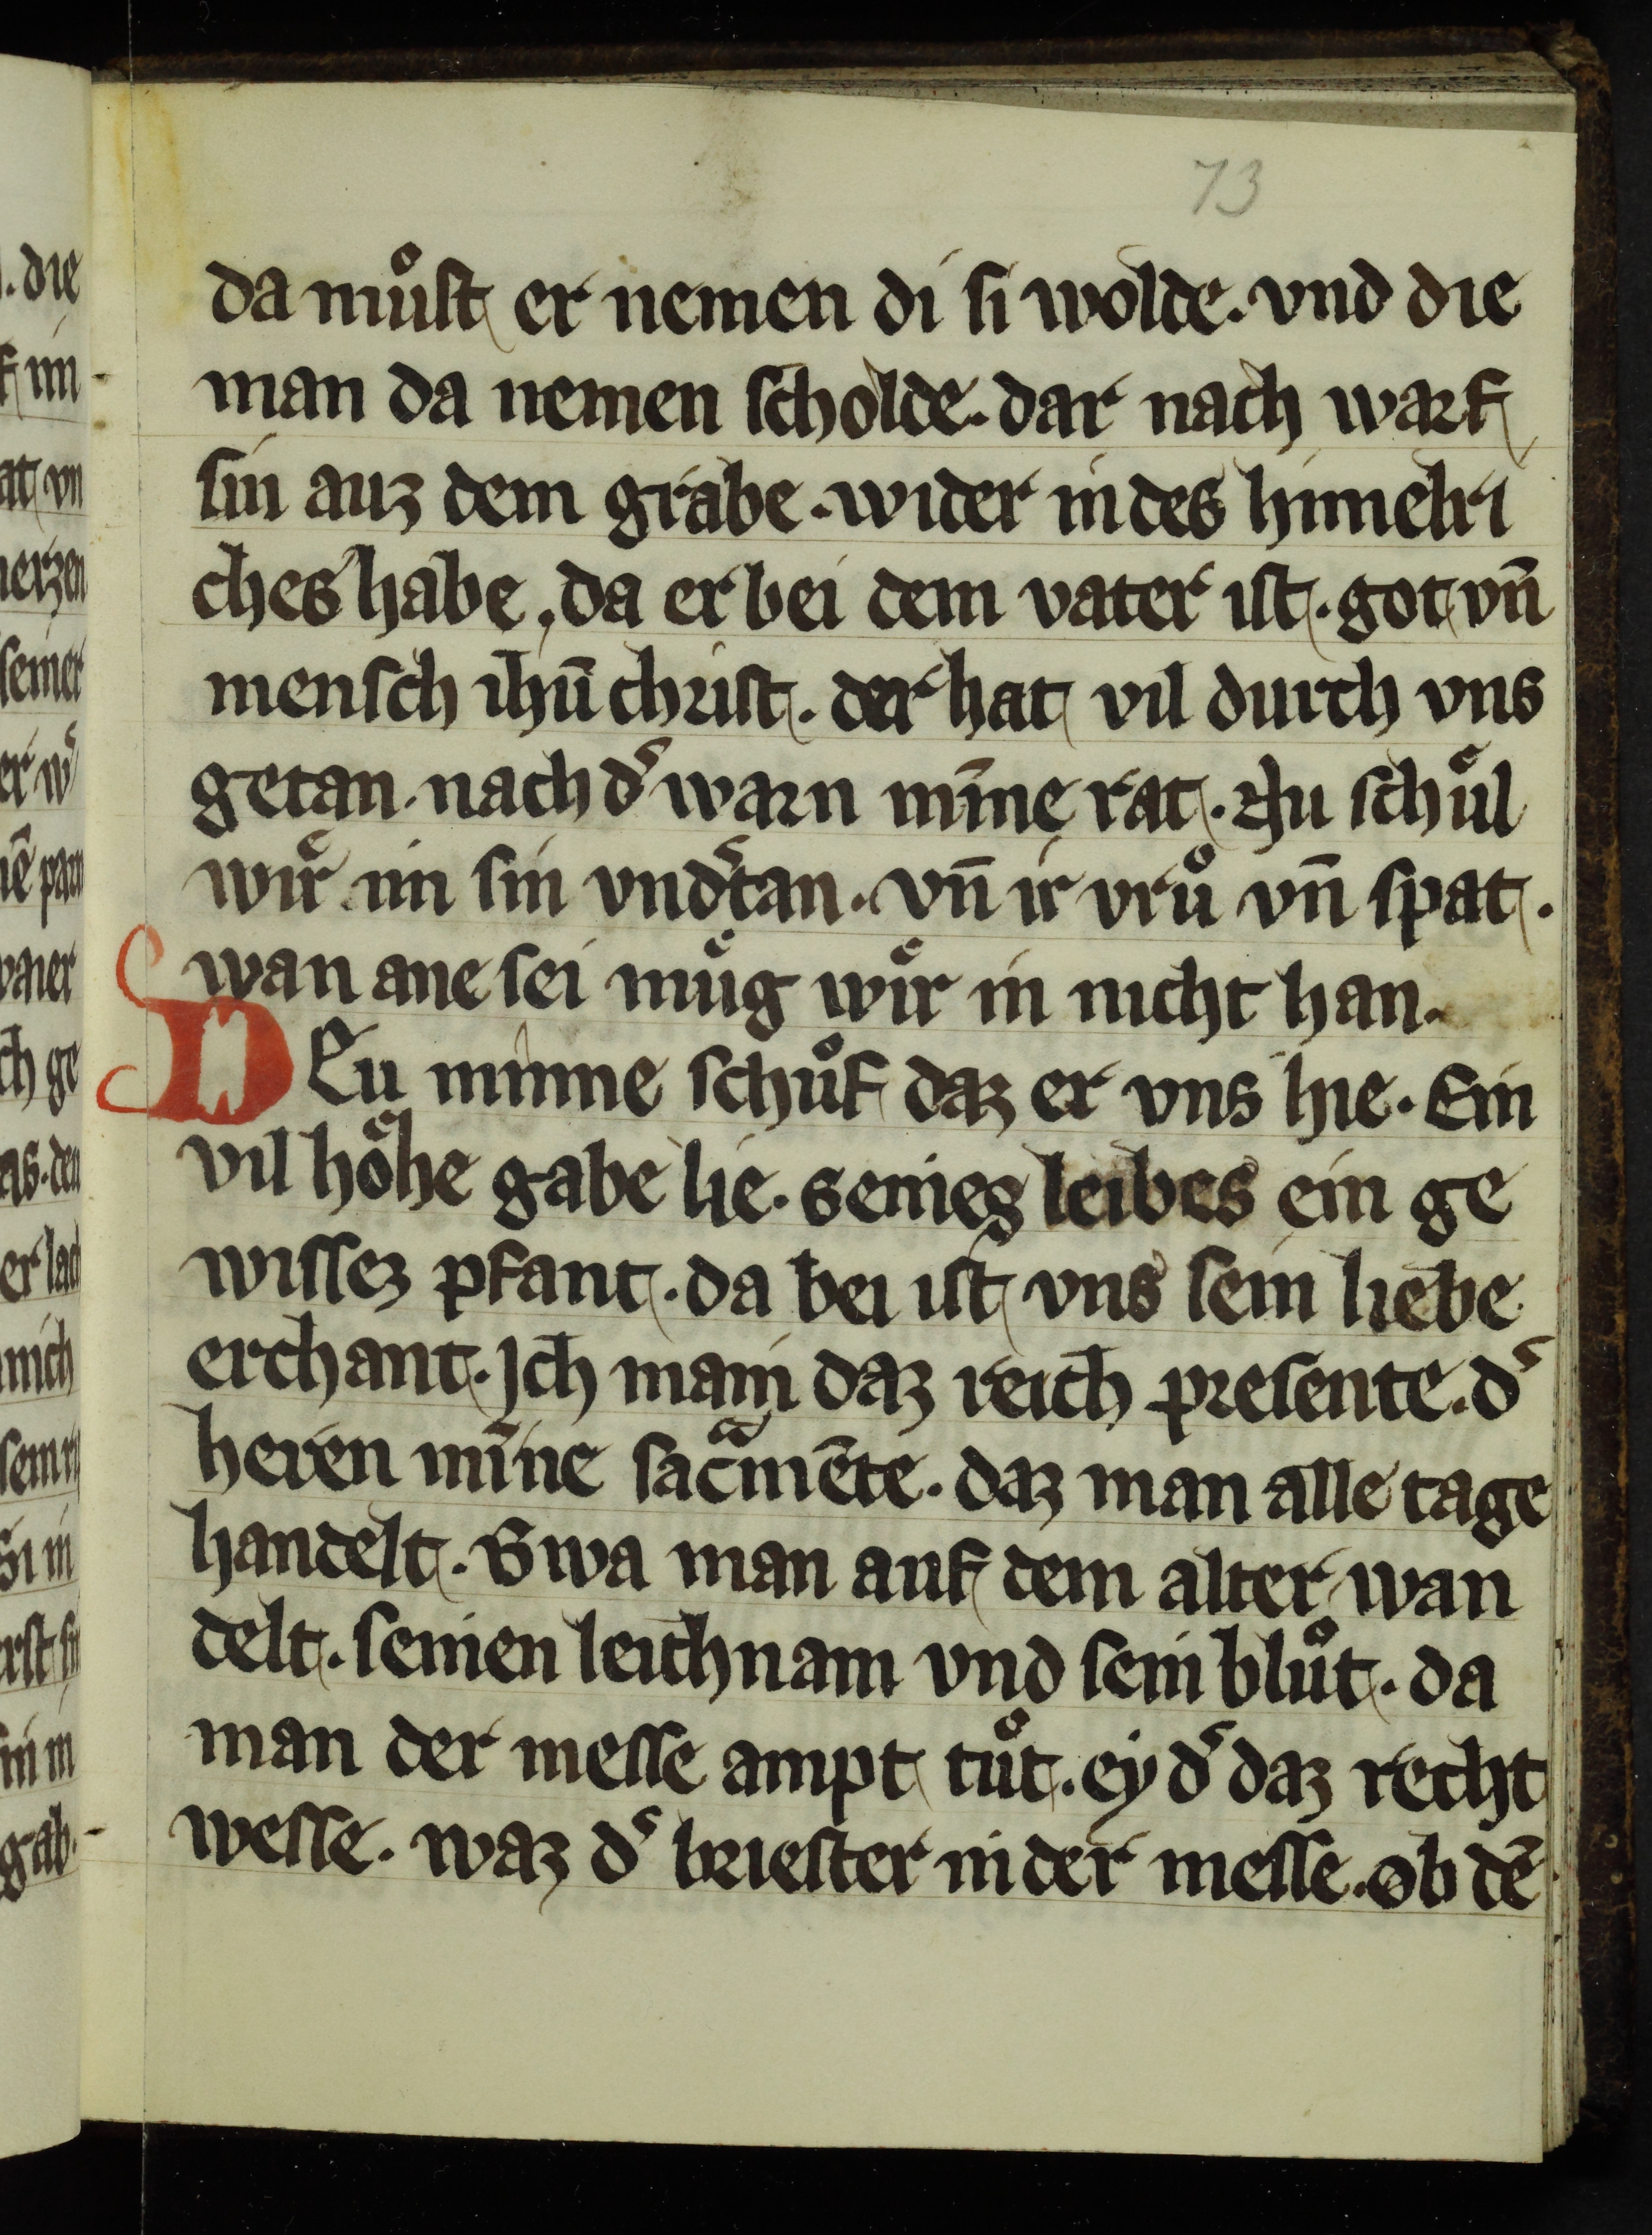 73
da muͦst er nemen di si wolde. vnd die
man da nemen scholde. dar nach warf
sin auz dem grabe. wider in des himelri
ches habe. da er bei dem vater ist. got vn̄
mensch ihū christ. der hat vil durch vns
getan. nach dˢ warn mı̄ne rat. Nu schuͤl
wiͤr im sin vndˢtan. vn̄ ir vruͦ vn̄ spat.
wan ane sei muͤg wiͤr in nicht han.
DEu minne schuͦf daz er vns hie. Ein
vil hoͤhe gabe lie. seines leibes ein ge
wissez pfant. da bei ist vns sein liebe
erchant. Ich main daz reich presente. dˢ
heren mı̄ne sacͣmēte. daz man alle tage
handelt. Swa man auf dem alter wan
delt. seinen leichnam vnd sein bluͦt. da
man der messe ampt tuͦt. ey dˢ daz recht
wesse. waz dˢ briester in der messe. ob dē